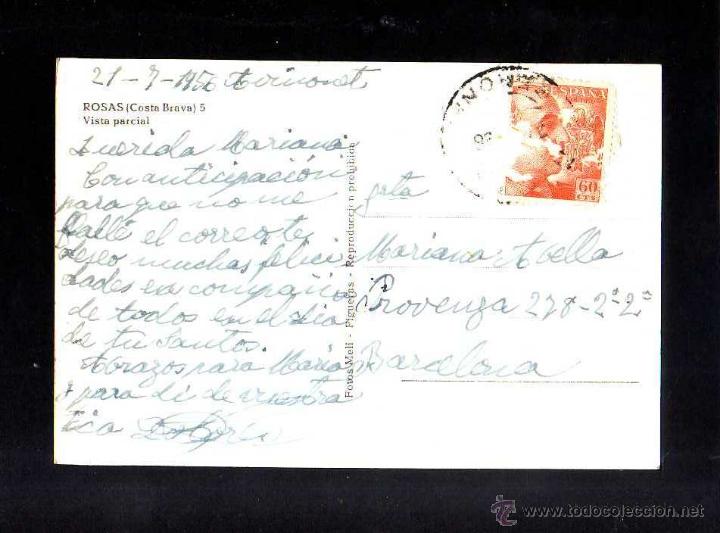 21-7-1956 Avinonet
ROSAS (Costa Brava) 5
Vista parcial
Querida Mariana
Con anticipación
para que no me
falle el correo te
deseo muchas felici
dades en compañia
de todos en el dia
de tu Santos.
Abrazos para Maria
y para ti de vuestra
tia Dolores
Fotos Meli - Figueras - Reproduccion prohibida
Srta
Mariana Abella
Provenza 278-2º2ª
Barcelona
ESPAÑA
60
CTS
www.todocoleccion.net